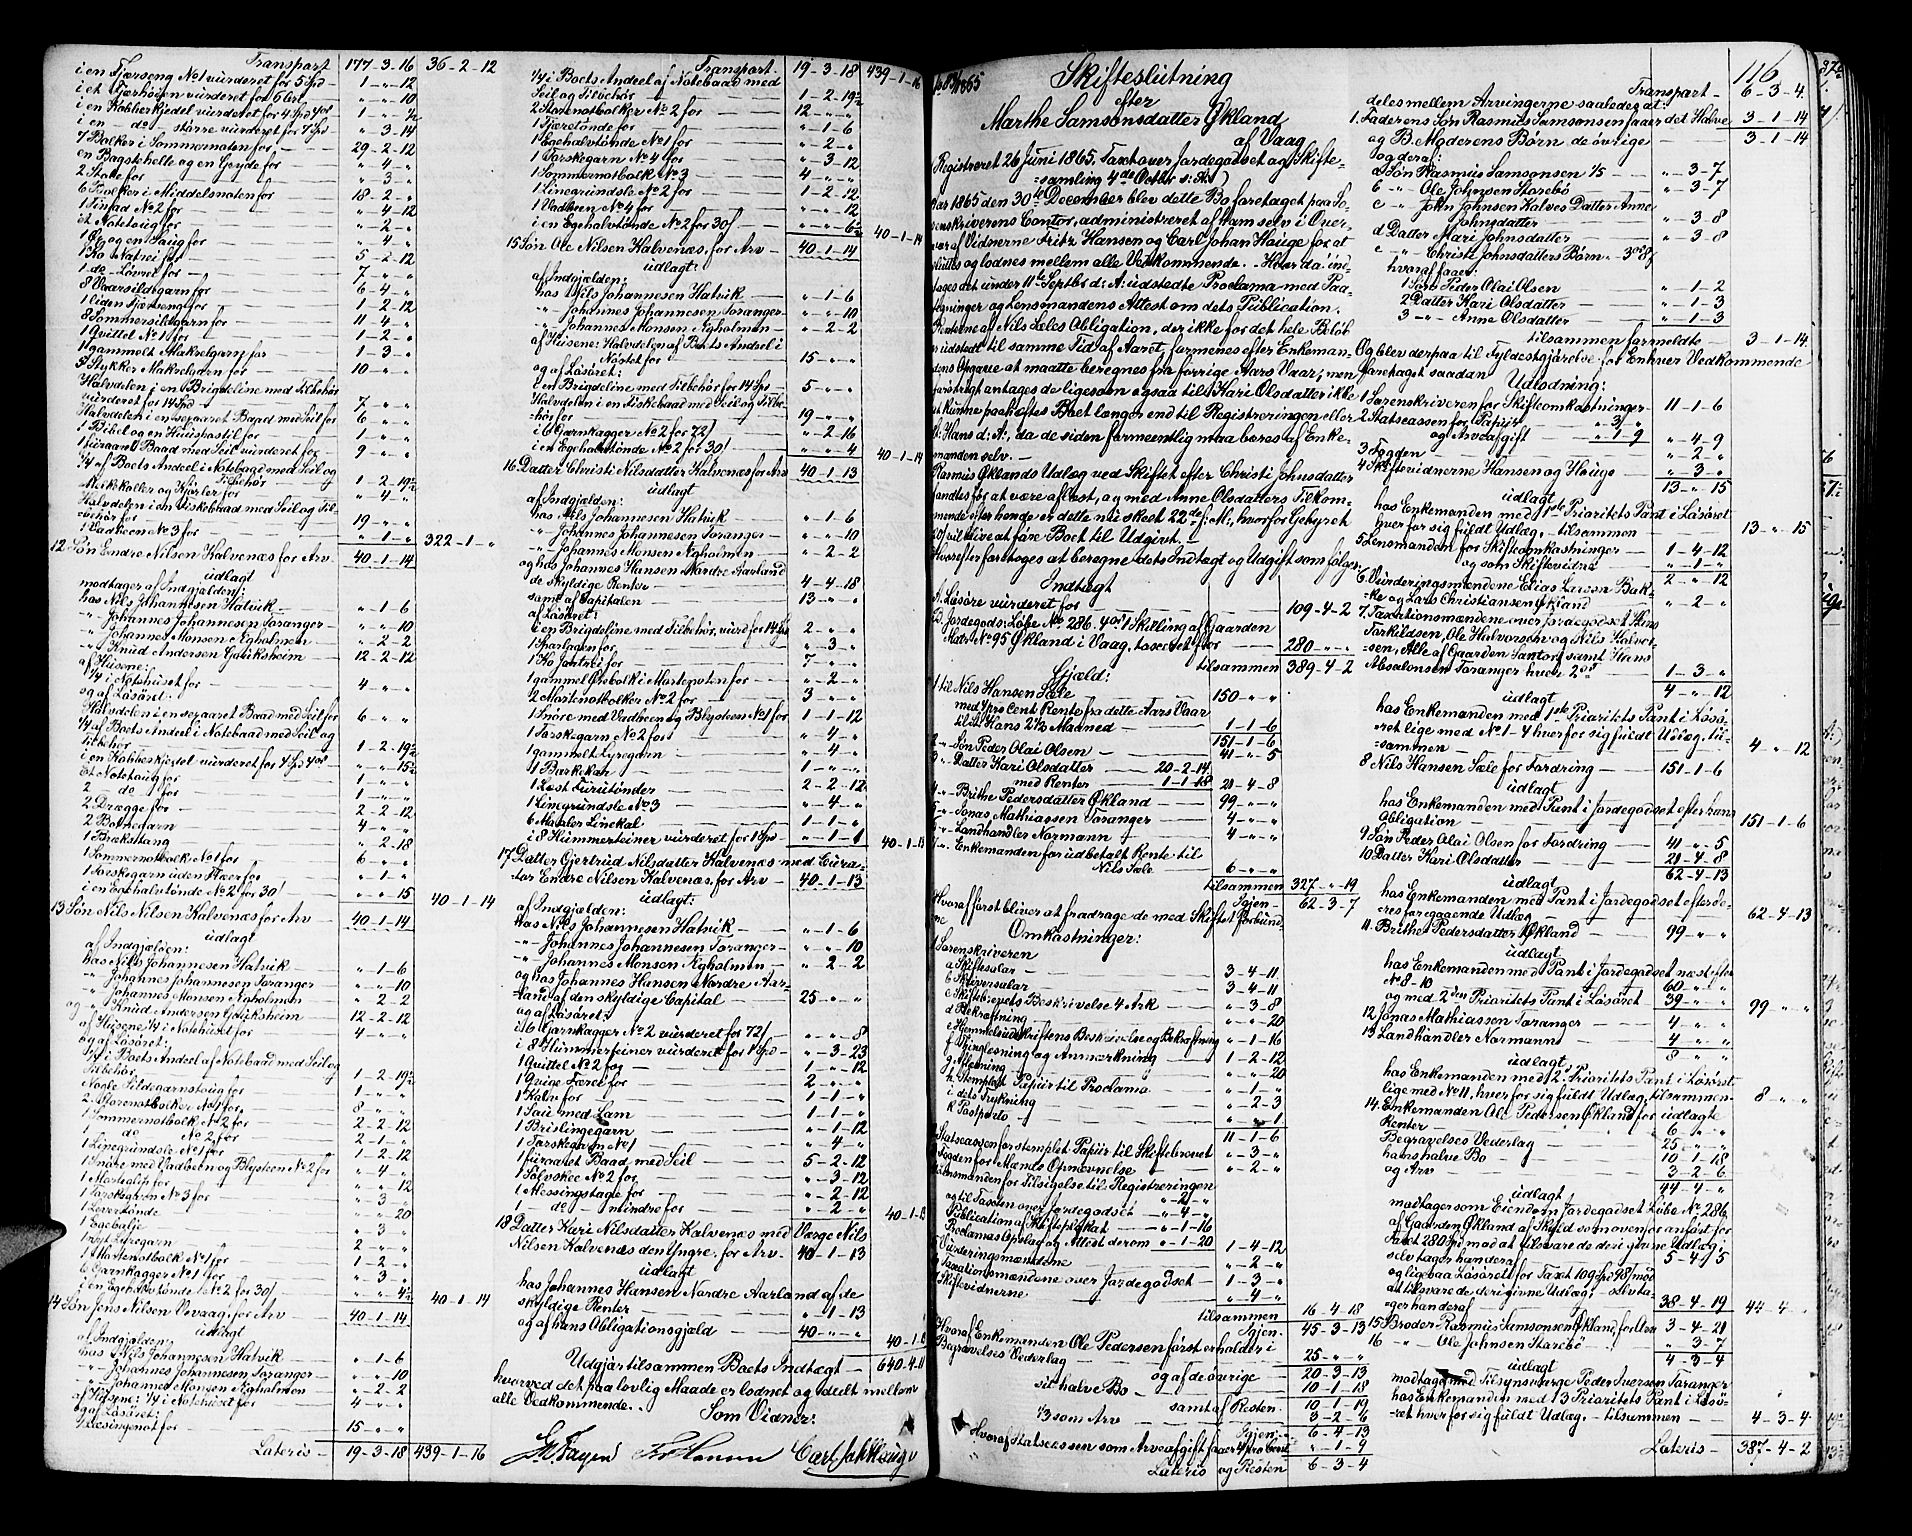 Transport 177-3-16 36-2-12
i en Fjærseng No 1 vurderet for 5 Spd 1-"-12
i et Tjærhorn vurderet for 6 ort "-"-10
i en Kobberkjedel vurderet for 4 Spd 4 ort
i en do større vurderet for 7 Spd "-3-14
7 Bolker i Sommernoten for 29-2-12
en Bagstehelle og en Gryde for "-4-"
2 Stole for "-3-"
6 Bolker i Middelsnoten for 18-2-"
1 Tinfad No 2 for "-4-12
et Notetoug for "-2-"
1 Øg og en Saug for "-4-"
1 Ko Natrei for 5-2-12
1 do Lovrei for 7-"-"
8 Vaarsildegarn for 6-4-"
1 liden Fjærseng for 1-2-12
8 Sommersildgarn for 11-4-"
1 Qvittel No 1 for 1-2-"
1 gammelt Makrelgarn for 1-3-"
5 Stykker Makrelgarn for 10-"-"
Halvdelen i en Brigdeline med Tilbehør
vurderet for 14 Spd 7-"-"
Halvdelen i en sexaaret Baad med Seil for 6-"-"
1 Bibel og en Huuspostil for 1-"-"
1 firaaret Baad med Seil vurderet for 9-"-"
1/4 af Boets Andeel i Notebaad med Seil og
Tilbehør 1-2-19½
Melkekoller og Kjørler for "-4-"
Halvdelen i en Fiskebaad med Seil og Til-
behør for 19-"-"
1 Vadbeen No 3 for "-1-" 322-1-"
12 Søn Endre Nilsen Kalvenæs for Arv 40-1-14
udlagt
modtager af Indgjælden:
hos Nils Johannesen Hatvik "-1-6
"-Johannes Johannesen Toranger "-"-10
"-Johannes Monsen Agholmen "-2-2
"-Knud Andersen Gouksheim 12-2-12
af Husene:
1/4 i Notehuset for 4-"-"
og af Løsøret:
Halvdelen i en sexaaret Baad med Seil for 6-"-"
1/4 af Boets Andeel i Notebaad med Seil og
Tilbehør 1-2-19½
i en Kobberkjedel vurderet for 4 Spd 4 ort "-"-15½
Et Notetoug for 1-"-"
2 do for 1-"-"
2 Drægge for 2-2-12
2 Botnegarn 4-"-"
1 Brækstang "-2-18
1 Sommernotbolk No 1 for 6-"-"
1 Torskegarn uden Flæer for "-1-"
i en Egehalvtønde No 2 for 30 s "-"-15 40-1-14
13 Søn Nils Nilsen Kalvenæs for Arv 40-1-14
udlagt
af Indgjælden:
hos Nils Johannesen Hatvik "-1-6
"-Johannes Johannesen Toranger "-"-10
"-Johannes Monsen Agholmen "-2-2
og "-Knud Andersen Gouksheim 12-2-12
af Husene 1/4 i Notehuset for 4-"-"
og af Løsøret:
1/4 i Boets Andeel af Notebaad med Seil og
Tilbehør 1-2-19½
Nogle Sildegarnstoug for 1-"-"
2 Storenotbolker No 1 for 8-"-"
1 Sommernotbolk No 2 for 2-2-12
1 do No 2 for 2-1-"
1 Linegrundsle No 1 for 1-2-12
1 Snøre med Vadbeen og Blysteen No 2 for "-4-"
1 Mortestip for "-"-12
1 Torskegarn No 3 for "-3-"
1 Levertønde "-"-20
1 Egebalje "-3-"
1 nyt Lyregarn 2-"-"
1 Mortenotbolk No 1 for 1-2-"
6 Garnkagger No 1 for "-3-"
i en Egehalvtønde No 2 for 30 s "-"-4½ 40-1-14
14 Søn Jens Nilsen Vevaag for Arv 40-1-14
udlagt
af Indgjælden:
hos Nils Johannesen Hatvik "-1-6
"-Johannes Johannesen Toranger "-"-10
"-Johannes Monsen Agholmen "-2-2
af Husene: 1/4 i Notehuset for 4-"-"
og af Løsøret:
1 Læsingenot for 15-"-"
Lateris 19-3-18 439-1-16
Transport 19-3-18 439-1-16
1/4 i Boets Andeel af Notebaad med
Seil og Tilbehør 1-2-19½
2 Storenotbolker No 2 for 12-"-"
1 Tjæretønde for "-1-6
1 Egehalvtønde No 1 for "-2-"
1 Torskegarn No 4 for "-3-12
1 Sommernotbolk No 3 4-"-"
1 Linegrundsle No 2 for 1-2-12
1 Vadbeen No 4 for "-"-12
i en Egehalvtønde No 2 for 30 s "-"-6½ 40-1-14
15 Søn Ole Nilsen Kalvenæs, for Arv 40-1-14
udlagt:
af Indgjælden:
hos Nils Johannesen Hatvik "-1-6
"-Johannes Johannesen Toranger "-"-10
"-Johannes Monsen Agholmen "-2-2
af Husene: Halvdelen af Boets Andeel i
Nøstet for 15-"-"
og af Løsøret:
i en Brigdeline med Tilbehør for 14 Spd 5-"-"
Halvdelen i en Fiskebaad med Seil og Tilbe-
hør for 19-"-"
i 6 Garnkagger No 2 for 72 s "-2-16
i en Egehalvtønde No 2 for 30 s "-"-4 40-1-14
16 Datter Christi Nilsdatter Kalvenæs for Arv 40-1-13
udlagt
af Indgjælden:
hos Nils Johannesen Hatvik "-1-6
"-Johannes Johannesen Toranger "-"-10
"-Johannes Monsen Agholmen "-2-2
og hos Johannes Hansen Nordre Aarland
de skyldige Renter 4-4-18
samt af Capitalen 13-"-"
af Løsøret:
i en Brigdeline med Tilbehør, vurd for 14 Spd 2-"-"
1 Spargarn for "-3-"
1 Ko Jontrei for 7-"-"
1 gammel Ørebolk i Mortenoten for "-2-"
2 Mortenotbolker No 2 for 3-"-"
1 Snøre med Vadbeen og Blysteen No 1 for 1-1-12
1 Torskegarn No 2 for "-4-"
1 gammelt Lyregarn "-4-"
4 Barkekar 1-"-"
1 Læst Furutønder 2-2-12
1 Linegrundsle No 3 "-4-"
6 Maaler Linekal 1-1-"
i 8 Hummerteiner vurderet for 1 Spd "-1-1 40-1-13
17 Datter Gjertrud Nilsdatter Kalvenæs med Cura-
tor Endre Nilsen Kalvenæs, for Arv 40-1-13
udlagt:
af Indgjælden:
hos Nils Johannesen Hatvik "-1-6
"-Johannes Johannesen Toranger "-"-10
"-Johannes Monsen Agholmen "-2-2
og hos Johannes Hansen Nordre Aar-
land af den skyldige Capital 25-"-"
og af Løsøret:
i 6 Garnkagger No 2 vurderet for 72 s "-"-8
i 8 Hummerteiner vurderet for 1 Spd "-3-23
1 Qvittel No 2 for 1-"-12
1 Qvige Færei for 2-"-"
1 Kalv for 1-1-"
1 Saue med Lam 1-1-"
1 Brislingegarn "-1-12
1 Torskegarn No 1 "-4-"
1 firaaret Baad med Seil 5-2-12
1 Sølvskee No 2 for "-3-12
1 Messingstage for "-2-12
1 do mindre for "-2-" 40-1-13
18 Datter Kari Nilsdatter Kalvenæs med Værge Nils
Nilsen Kalvenæs den Yngre, for Arv 40-1-13
udlagt
hos Johannes Hansen Nordre Aarland af de
skyldige Renter "-1-13
og af hans Obligationsgjæld 40-"-" 40-1-13
Udgjør tilsammen Boets Indtægt 640-4-11
hvorved det paa lovlig Maade er lodnet og deelt mellem
alle Vedkommende.
Som Vidner:
Fr Hansen Carl Joh Haug
116
1865 Skifteslutning
efter
Marthe Samsonsdatter Økland
af Vaag
(Registreret 26 Juni 1865. Taxt over Jordegodset og Skifte-
samling 4de Octbr s: A:)
Aar 1865 den 30te December blev dette Bo foretaget paa So-
renskriverens Contor, administreret af ham selv i Over-
vær af Vidnerne Fritz Hansen og Carl Johan Hauge for at
sluttes og lodnes mellem alle Vedkommende. Hvor da ind-
toges det under 11te Septbr d: A: udstedte Proclama med Paa-
tegninger og Lensmandens Attest om dets Publication.
Renterne af Nils Sæles Obligation, der ikke for det hele Beløb
er udstedt til samme Tid af Aaret, formenes efter Enkeman-
dens Opgave at maatte beregnes fra forrige Aars Vaar; men
forøvrigt antages de ligesom ogsaa til Kari Olsdatter ikke
at kunne paahæftes Boet længer end til Registreringen eller
St: Hans d: A:, da de siden formeentlig maa bæres af Enke-
manden selv.
Rasmus Øklands Udlæg ved Skiftet efter Christi Johnsdatter
fandtes før at være aflæst, og med Anne Olsdatters Tilkom-
mende efter hende er dette nu skeet 22de f: M:, hvorfor Gebyret
20 s vil blive at føre Boet til Udgivt.
Hvorefter foretoges at beregne dets Indtægt og Udgift som følger:
Indtægt
A. Løsøre vurderet for 109-4-2
B. Jordegods: Løbe No 286. 4 ort 1 Skilling af Gaarden
Matr: No 95 Økland i Vaag, taxeret for 280-"-"
tilsammen 389-4-2
Gjæld:
1 til Nils Hansen Sæle 150-"-"
med 4 pro Cent Rente fra dette Aars Vaar
til St: Hans 2½ Maaned 1-1-6
151-1-6
2 "-Søn Peder Olai Olsen 41-"-5
3 "-Datter Kari Olsdatter 20-2-14
med Renter 1-1-18 21-4-8
4 "-Brithe Pedersdatter Økland 99-"-"
5 "-Jonas Mathiassen Toranger 4-"-"
6 "-Landhandler Normann 4-"-"
7 "-Enkemanden for udbetalt Rente til
Nils Sæle 6-"-"
tilsammen 327-"-19
Igjen 62-3-7
Hvoraf først bliver at fradrage de med Skiftet forbund-
ne Omkostninger:
1 Sorenskriveren
a Skiftesalar 3-4-11
b Skriversalar 3-4-11
c Skiftebrevets Beskrivelse 4 Ark "-3-8
d Bekræftning "-"-20
e Hjemmelsudskriftens Beskrivelse og Bekræftning "-1-16
f Thinglesning og Anmærkning 1-2-12
g Aflysning "-"-20
h Stemplet Papiir til Proclama "-1-"
i dets Trykning "-2-3
k Postporto "-"-1
11-1-6
2 Statscassen for stemplet Papiir til Skiftebrevet "-3-"
3 Fogden for Mænds Opnævnelse "-2-"
4 Lensmanden for Tilsigelse til Registreringen
og til Taxten over Jordegodset "-4-"
Publication af Skifteplakat "-1-16
Proclamas Opslag og Attest derom "-1-20 1-4-12
5 Vurderingsmændene "-2-"
6 Taxationsmændene over Jordegodset 1-3-"
7 Skiftevidnerne "-4-"
tilsammen 16-4-18
Igjen 45-3-13
Hvoraf Enkemanden Ole Pedersen først erholder i
Begravelses Vederlag 25-"-"
og af de øvrige 20-3-13
sit halve Bo 10-1-18
samt af Resten 10-1-19
1/3 som Arv 3-2-6
Igjen 6-4-13
Hvoraf Statscassen som Arveafgift faaer 4 pro Cent "-1-9
Lateris og Resten 6-3-4
Transport 6-3-4
deles mellem Arvingerne saaledes at:
1. Faderens Søn Rasmus Samsonsen faaer det Halve 3-1-14
og B. Moderens Børn de øvrige 3-1-14
og deraf:
a Søn Rasmus Samsonsen 1/5 "-3-7
b "-Ole Johnsen Storebø "-3-7
c "-John Johnsen Kalves Datter Anne
Johnsdatter "-3-8
d Datter Mari Johnsdatter "-3-8
e "-Christi Johnsdatters Børn 3 ort 8 s
hvoraf faaer:
1 Søn Peder Olai Olsen "-1-2
2 Datter Kari Olsdatter "-1-3
3 "-Anne Olsdatter "-1-3
tilsammen formeldte 3-1-14
Og blev derpaa til Fyldestgjørelse for Enhver Vedkommende
foretaget saadan
Udlodning:
1 Sorenskriveren for Skifteomkostninger 11-1-6
2 Statscassen for Papiir "-3-"
og Arveafgift "-1-9 "-4-9
3 Fogden "-2-"
4 Skiftevidnerne Hansen og Hauge "-3-"
13-"-15
udlagt
hos Enkemanden med 1ste Prioritets Pant i Løsøret
hver for sig fuldt Udlæg, tilsammen 13-"-15
5 Lensmanden for Skifteomkostninger 1-4-12
og som Skiftevidne "-1-"
2-"-12
6 Vurderingsmændene Elias Larsen Bak-
ke og Lars Christiansen Økland "-2-"
7 Taxationsmændene over Jordegodset Hans
Torkildsen, Ole Halvorsen og Nils Halvor-
sen, Alle af Gaarden Santorv samt Hans
Absalonsen Toranger hver 2 ort 1-3-"
4-"-12
udlagt
hos Enkemanden med 1ste Prioritets Pant i Løsø-
ret lige med No 1-4 hver for sig fuldt Udlæg, til-
sammen 4-"-12
8 Nils Hansen Sæle for Fordring 151-1-6
udlagt
hos Enkemanden med Pant i Jordegodset efter hans
Obligation 151-1-6
9 Søn Peder Olai Olsen for Fordring 41-"-5
10 Datter Kari Olsdatter 21-4-8
62-4-13
udlagt
hos Enkemanden med Pant i Jordegodset efter de-
res foregaaende Udlæg 62-4-13
11 Brithe Pedersdatter Økland 99-"-"
udlagt
hos Enkemanden med Pant i Jordegodset næst efter
No 8-10 60-"-"
og med 2den Prioritets Pant i Løsøret 39-"-" 99-"-"
12 Jonas Mathiassen Toranger 4-"-"
13 Landhandler Normann 4-"-"
8-"-"
udlagt
hos Enkemanden med 2den Prioritets Pant i Løsøret
lige med No 11, hver for sig fuldt Udlæg, tilsammen 8-"-"
14 Enkemanden Ole Pedersen Økland for udlagte
Renter 6-"-"
Begravelses Vederlag 25-"-"
hans halve Bo 10-1-18
og Arv 3-2-6
44-4-"
udlagt
modtager som Eiendom Jordegodset Løbe No 286
af Gaarden Økland af Skyld som ovenfor anført for
Taxt 280 Spd mod at tilsvare de deri givne Udlæg,
selv tager han deraf 5-4-5
og ligesaa Løsøret for Taxt 109 Spd 98 s mod
at tilsvare de deri givne Udlæg, selv ta-
ger han deraf 38-4-19 44-4-"
15 Broder Rasmus Samsonsen Økland, for Arv 3-4-21
16 "-Ole Johnsen Storebø "-3-7
4-3-4
udlagt
modtager med Tilsynsværge Peder Iversen Toranger
hos Enkemanden med 3 Prioritets Pant i Løsø-
ret hver for sig fuldt Udlæg, tilsammen 4-3-4
Lateris 387-4-2